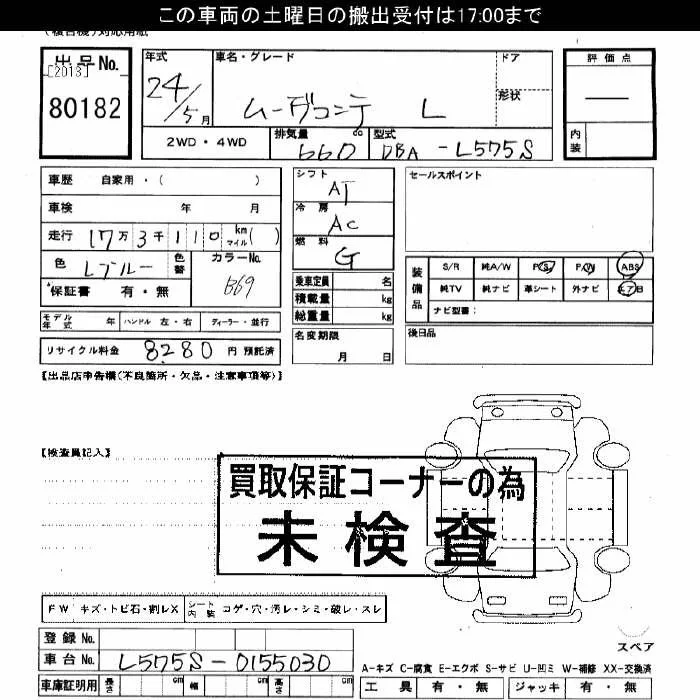 この車両の土曜日の搬出受付は17:00まで
出品No.
[2013]
80182
年式
24/5月
車名・グレード
ムーヴコンテ L
ドア
形状
評価点
内装
2WD・4WD
排気量
660
cc
型式
DBA-L575S
車歴 自家用・( )
車検 年 月
走行 17万3千110 km マイル( )
色 Lブルー
色替
カラーNo.
B69
保証書 有・無
シフト
AT
冷房
AC
燃料
G
乗車定員 名
積載量 kg
総重量 kg
セールスポイント
装備品
S/R 純A/W P/S P/W ABS
純TV 純ナビ 革シート 外ナビ エアB
ナビ型番:
モデル年式 年 ハンドル 左・右 ディーラー・並行
名変期限
月 日
後日品
リサイクル料金 8280 円 預託済
【出品店申告欄(不良箇所・欠品・注意事項等)】
【検査員記入】
買取保証コーナーの為
未検査
FW キズ・トビ石・割レX シート内装 コゲ・穴・汚レ・シミ・破レ・スレ
登録No.
車台No. L575S-0155030
スペア
車庫証明用 長さ cm 幅 cm 高さ cm
A-キズ C-腐食 E-エクボ S-サビ U-凹ミ W-補修 XX-交換済
工具 有・無 ジャッキ 有・無